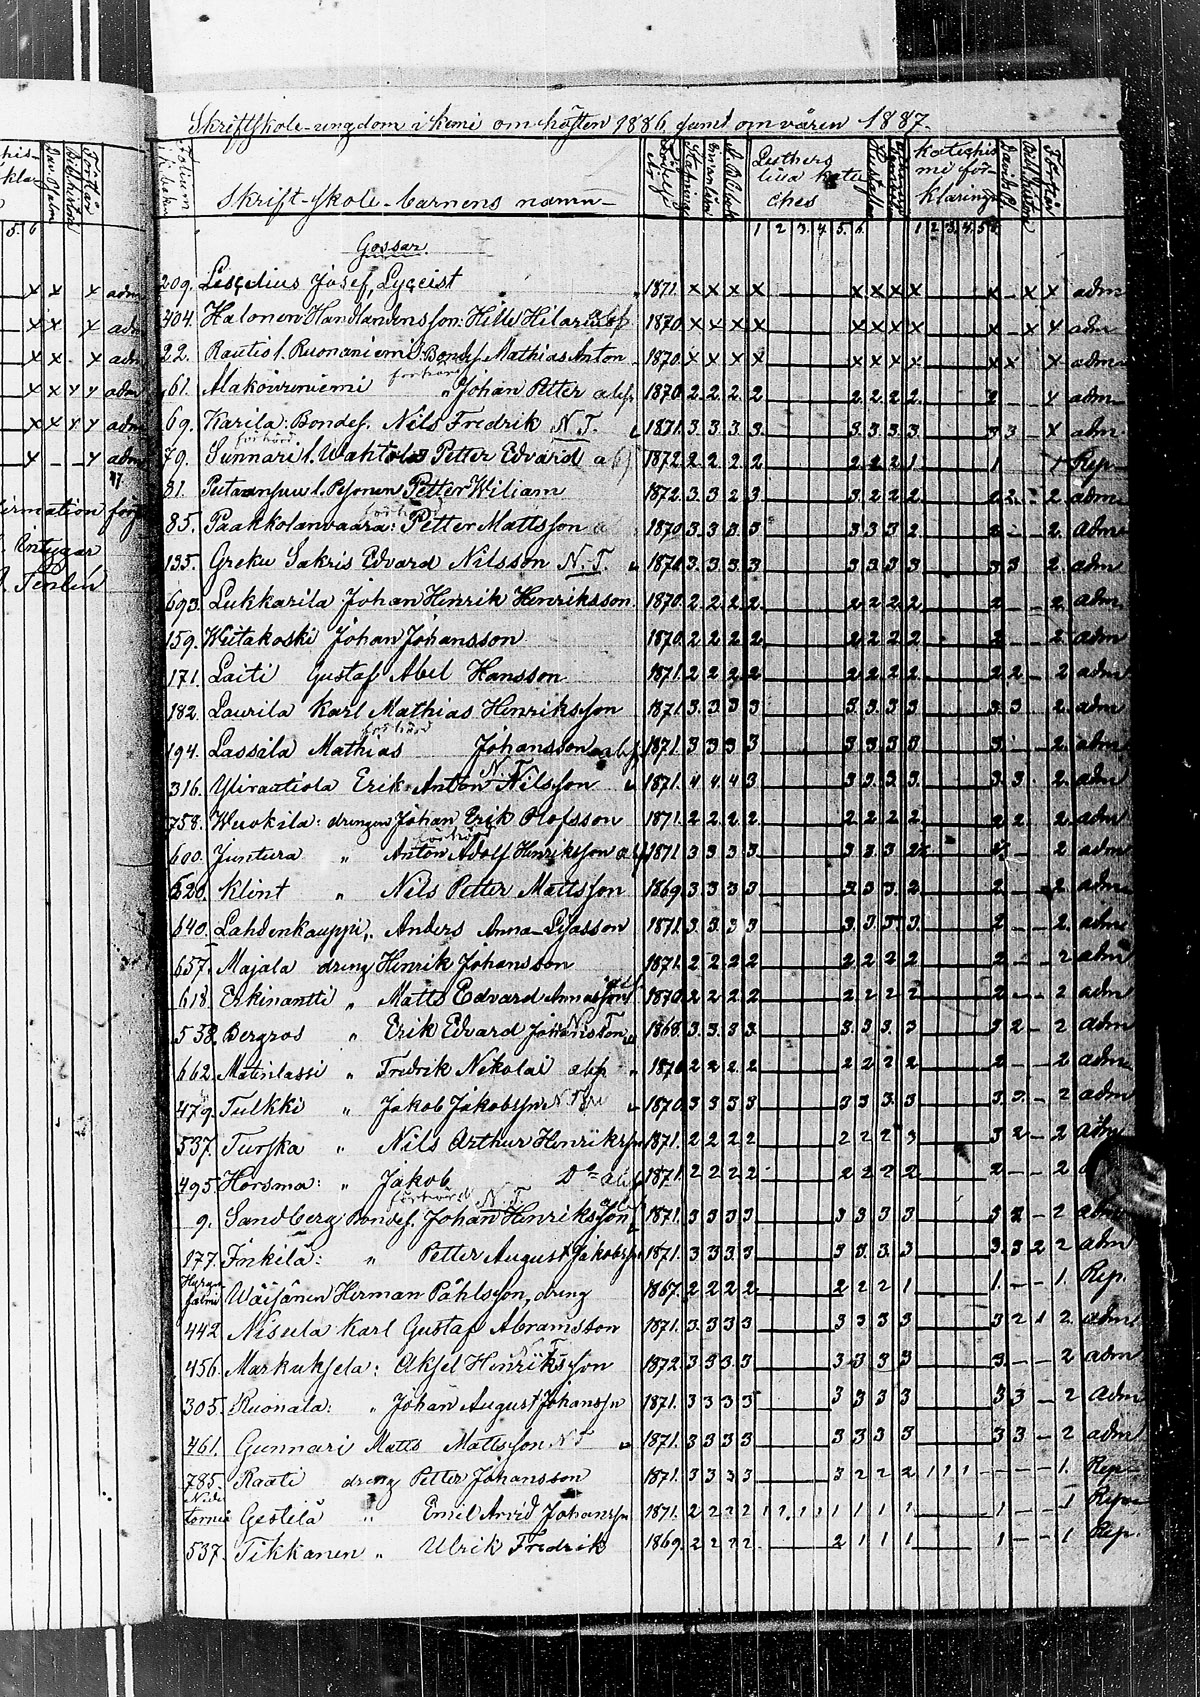 Skriftskole-ungdom i Kemi om hösten 1886 samt om våren 1887.
Skrift-skole-barnens namn
Födelse År
Stafning
Innanläsn
A. B. C. bok
Luthers lilla kateches
Hustaflan
Katechismi förklaring
Förstår
1 2 3. 4 5. 6. 1 2 3. 4. 5 6
Gossar.
209. Læstadius Josef, Lyceist 1871. x x x x x x x x x x x adm
404. Halonen Handlandensson: Hille Hilarius 1870. x x x x x x x x x x x adm
22. Rautio l. Ruonaniemi Bondes. Mathias Anton 1870. x x x x x x x x x x x adm
förhörd
61. Alakoivuniemi " Johan Petter abs 1870. 2. 2. 2. 2 2. 2. 2. 2. 2 x adm
69. Karila: Bondes. Nils Fredrik N.T. 1871. 3. 3. 3. 3. 3. 3. 3. 3 3 3 - x adm.
förhörd
79. Sunnari l. Wahtola Petter Edvard abs 1872. 2 2 2 2 2 2 2 1 1 1 Rep
81. l. Pesonen Petter Wiliam 1872. 3. 3 2 3 3. 2. 2. 2 2 2 - 2. adm
förhörd
85. Paakkolanvaara: Petter Mattsson 1870 3 3. 3 3 3 3 3 2 2 - - 2. adm
135. Greku Sakris Edvard Nilsson N.T. 3. 3. 3. 3 3. 3. 3. 3 3 3 2. adm
693. Lukkarila Johan Henrik Henriksson 1870. 2. 2. 2. 2. 2. 2. 2. 2 2 - - 2. adm
159. Weitakoski Johan Johansson 1870. 2 2 2 2 2 2 2 2 2 - - 2 adm
171. Laiti Gustaf Abel Hansson 1871. 2 2 2 2 2 2 2 2 2 2 - 2 adm
182. Laurila Karl Mathias Henriksson 1871. 3. 3. 3. 3 3. 3. 3 3 3 3 2. adm
förhörd
194. Lassila Mathias Johansson abs 1871. 3 3 3 3 3 3 3 3 3. - - 2. adm
N.T.
316. Ylirautiola Erik Anton Nilsson 1871. 4. 4. 4 3 3. 3. 3. 3. 3 3. 2. adm
758. Wuokila: drengen Johan Erik Olofsson 1871. 2. 2. 2. 2. 2 2 2 2 2 2 2. adm
förhörd
600. Juntura " Anton Adolf Henriksson abs 1871 3. 3. 3. 3 3 3. 3 2 - 2 adm
620. Klint " Nils Petter Mattsson 1869. 3. 3. 3. 3 3. 3 3 2 2 - - 2 adm
640. Lahdenkauppi " Anders Anna-Lisasson 1871. 3. 3. 3 3 3. 3. 3. 3 2 - - 2. adm
657. Majala dreng Henrik Johansson 1871. 2. 2. 2. 2 2. 2. 2. 2 2 - - 2 adm
618. Erkinantti " Matts Edvard Annasson 1870 2 2 2 2 2 2 2 2 2 - - 2 adm
538. Bergros " Erik Edvard Johansson N.T. 1868. 3. 3. 3. 3 3. 3. 3. 3 3 2 - 2 adm
662. Matinlassi " Fredrik Nikolai abs 1870 2 2 2 2 2 2 2 2 2 - - 2 adm
479. Tulkki " Jakob Jakobsson N.T. 1870. 3 3 3 3 3 3 3. 3 3. 2 - 2 adm
537. Turska " Nils Arthur Henrikss. 1871. 2 2 2 2 2 2 2 3 3 2 - 2 adm
495. Horsma: " Jakob Do abs 1871. 2 2 2 2 2 2 2 2 2 - - 2
förhörd N.T.
9. Sandberg Bondes. Johan Henriksson 1871. 3 3 3 3 3 3 3 3 3 2 - 2 adm
177. Inkilä: " Petter August Jakobss. 1871. 3 3. 3. 3 3 3. 3. 3 3. 3 2 2 adm
Wäisänen Herman Påhlsson, dreng 1867. 2 2 2 2 2 2 2 1 1. - - 1. Rep.
442. Nisula Karl Gustaf Abramsson 1871. 3. 3. 3 3 3 3 3 3 3 2 1 2. adm
456. Markuksela: Aksel Henriksson 1872. 3 3 3. 3 3 3 3 3 3. - - 2 adm
305. Ruonala: " Johan August Johanss. 1871. 3 3 3 3 3 3 3 3 3 3 - 2 adm
461. Gunnari Matts Mattsson N T 1871. 3 3 3 3 3 3 3 3 3 3 - 2 adm
785. Raati dreng Petter Johansson 1871. 3 3 3 3 3 2 2 2 1 1 1 - - - 1. Rep
Neder
Torneå Gestilä " Emil Arvid Johanss. 1871. 2 2 2 2 1 1 1 1 1 1 1 1 1 - - 1 Rep
537. Tikkanen " Ulrik Fredrik 1869. 2 2 2 2 2 1 1 1 1 - - 1 Rep.